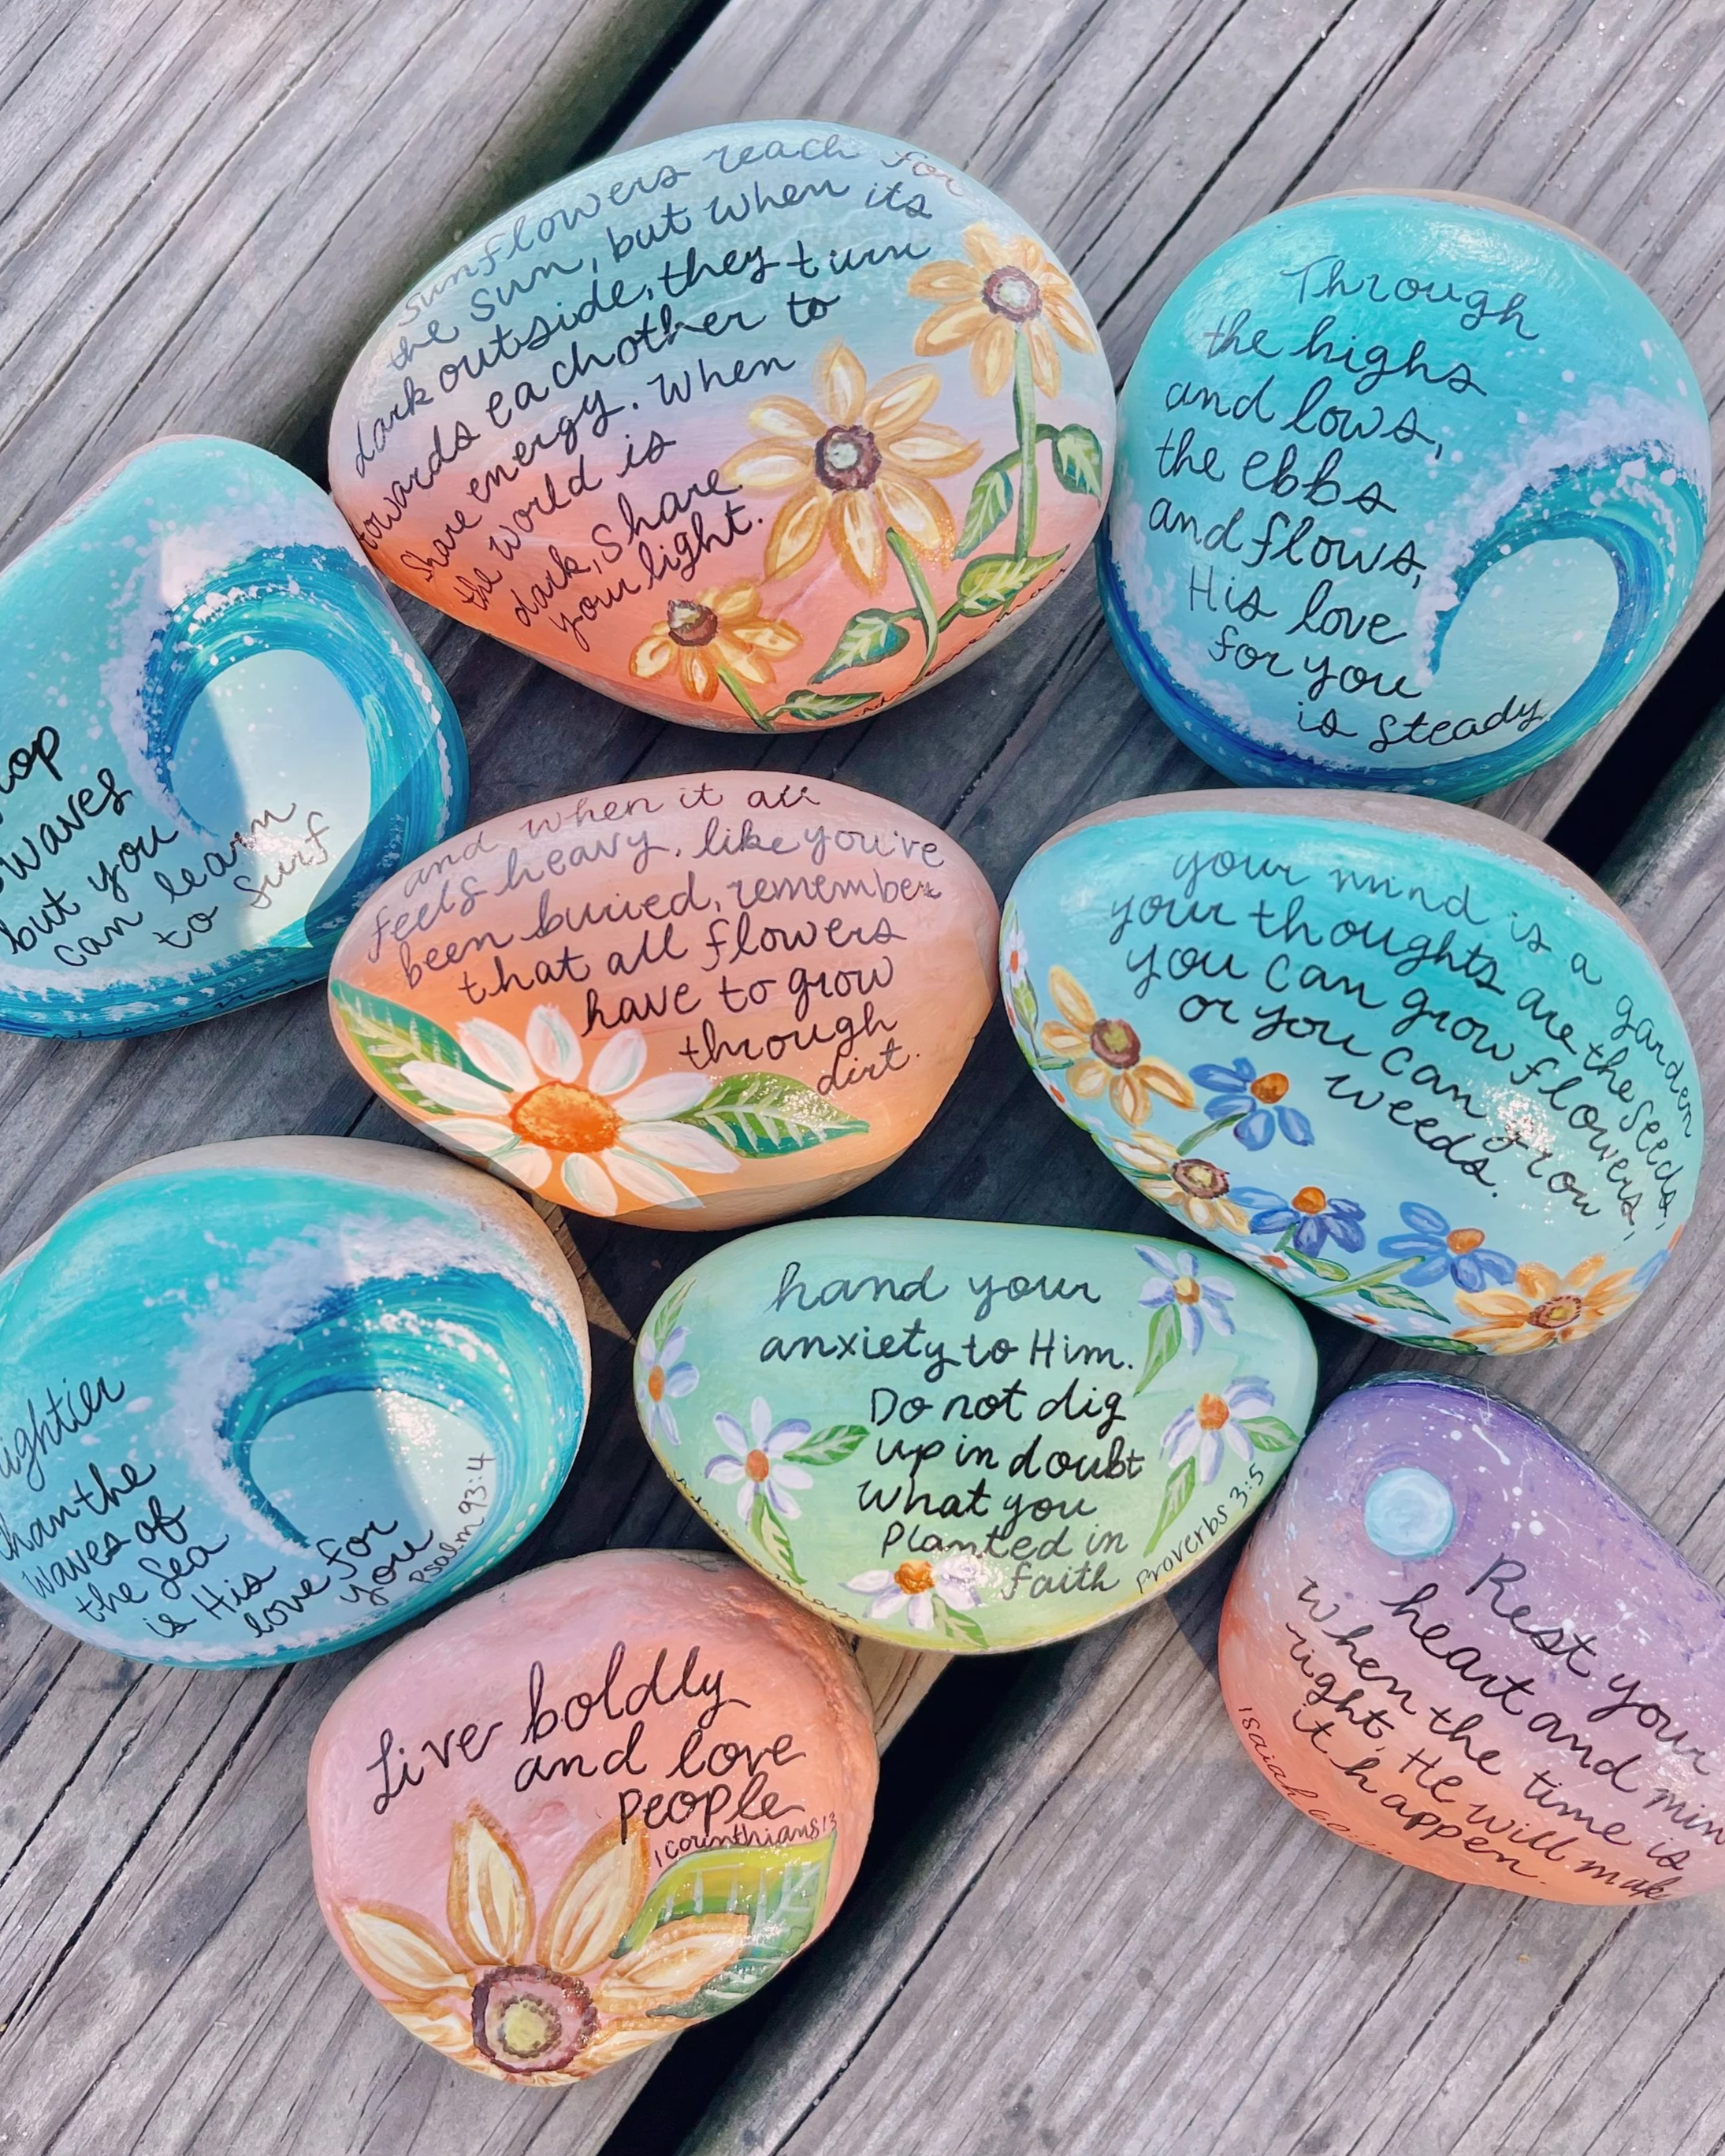 sunflowers reach for
the sun, but when its
dark outside, they turn
towards eachother to
share energy. When
the world is
dark, Share
your light.
Through
the highs
and lows,
the ebbs
and flows,
His love
for you
is Steady
waves
but you
can learn
to surf
and when it all
feels heavy, like you've
been buried, remember
that all flowers
have to grow
through
dirt.
your mind is a garden
your thoughts are the seeds,
you can grow flowers,
or you can grow
weeds.
than the
waves of
the Sea
is His
love for
you
Psalm 93:4
hand your
anxiety to Him.
Do not dig
up in doubt
What you
Planted in
faith
Proverbs 3:5
Live boldly
and love
people
1 corinthians 13
Rest your
heart and
When the time is
right, He will
it happen.
Isaiah